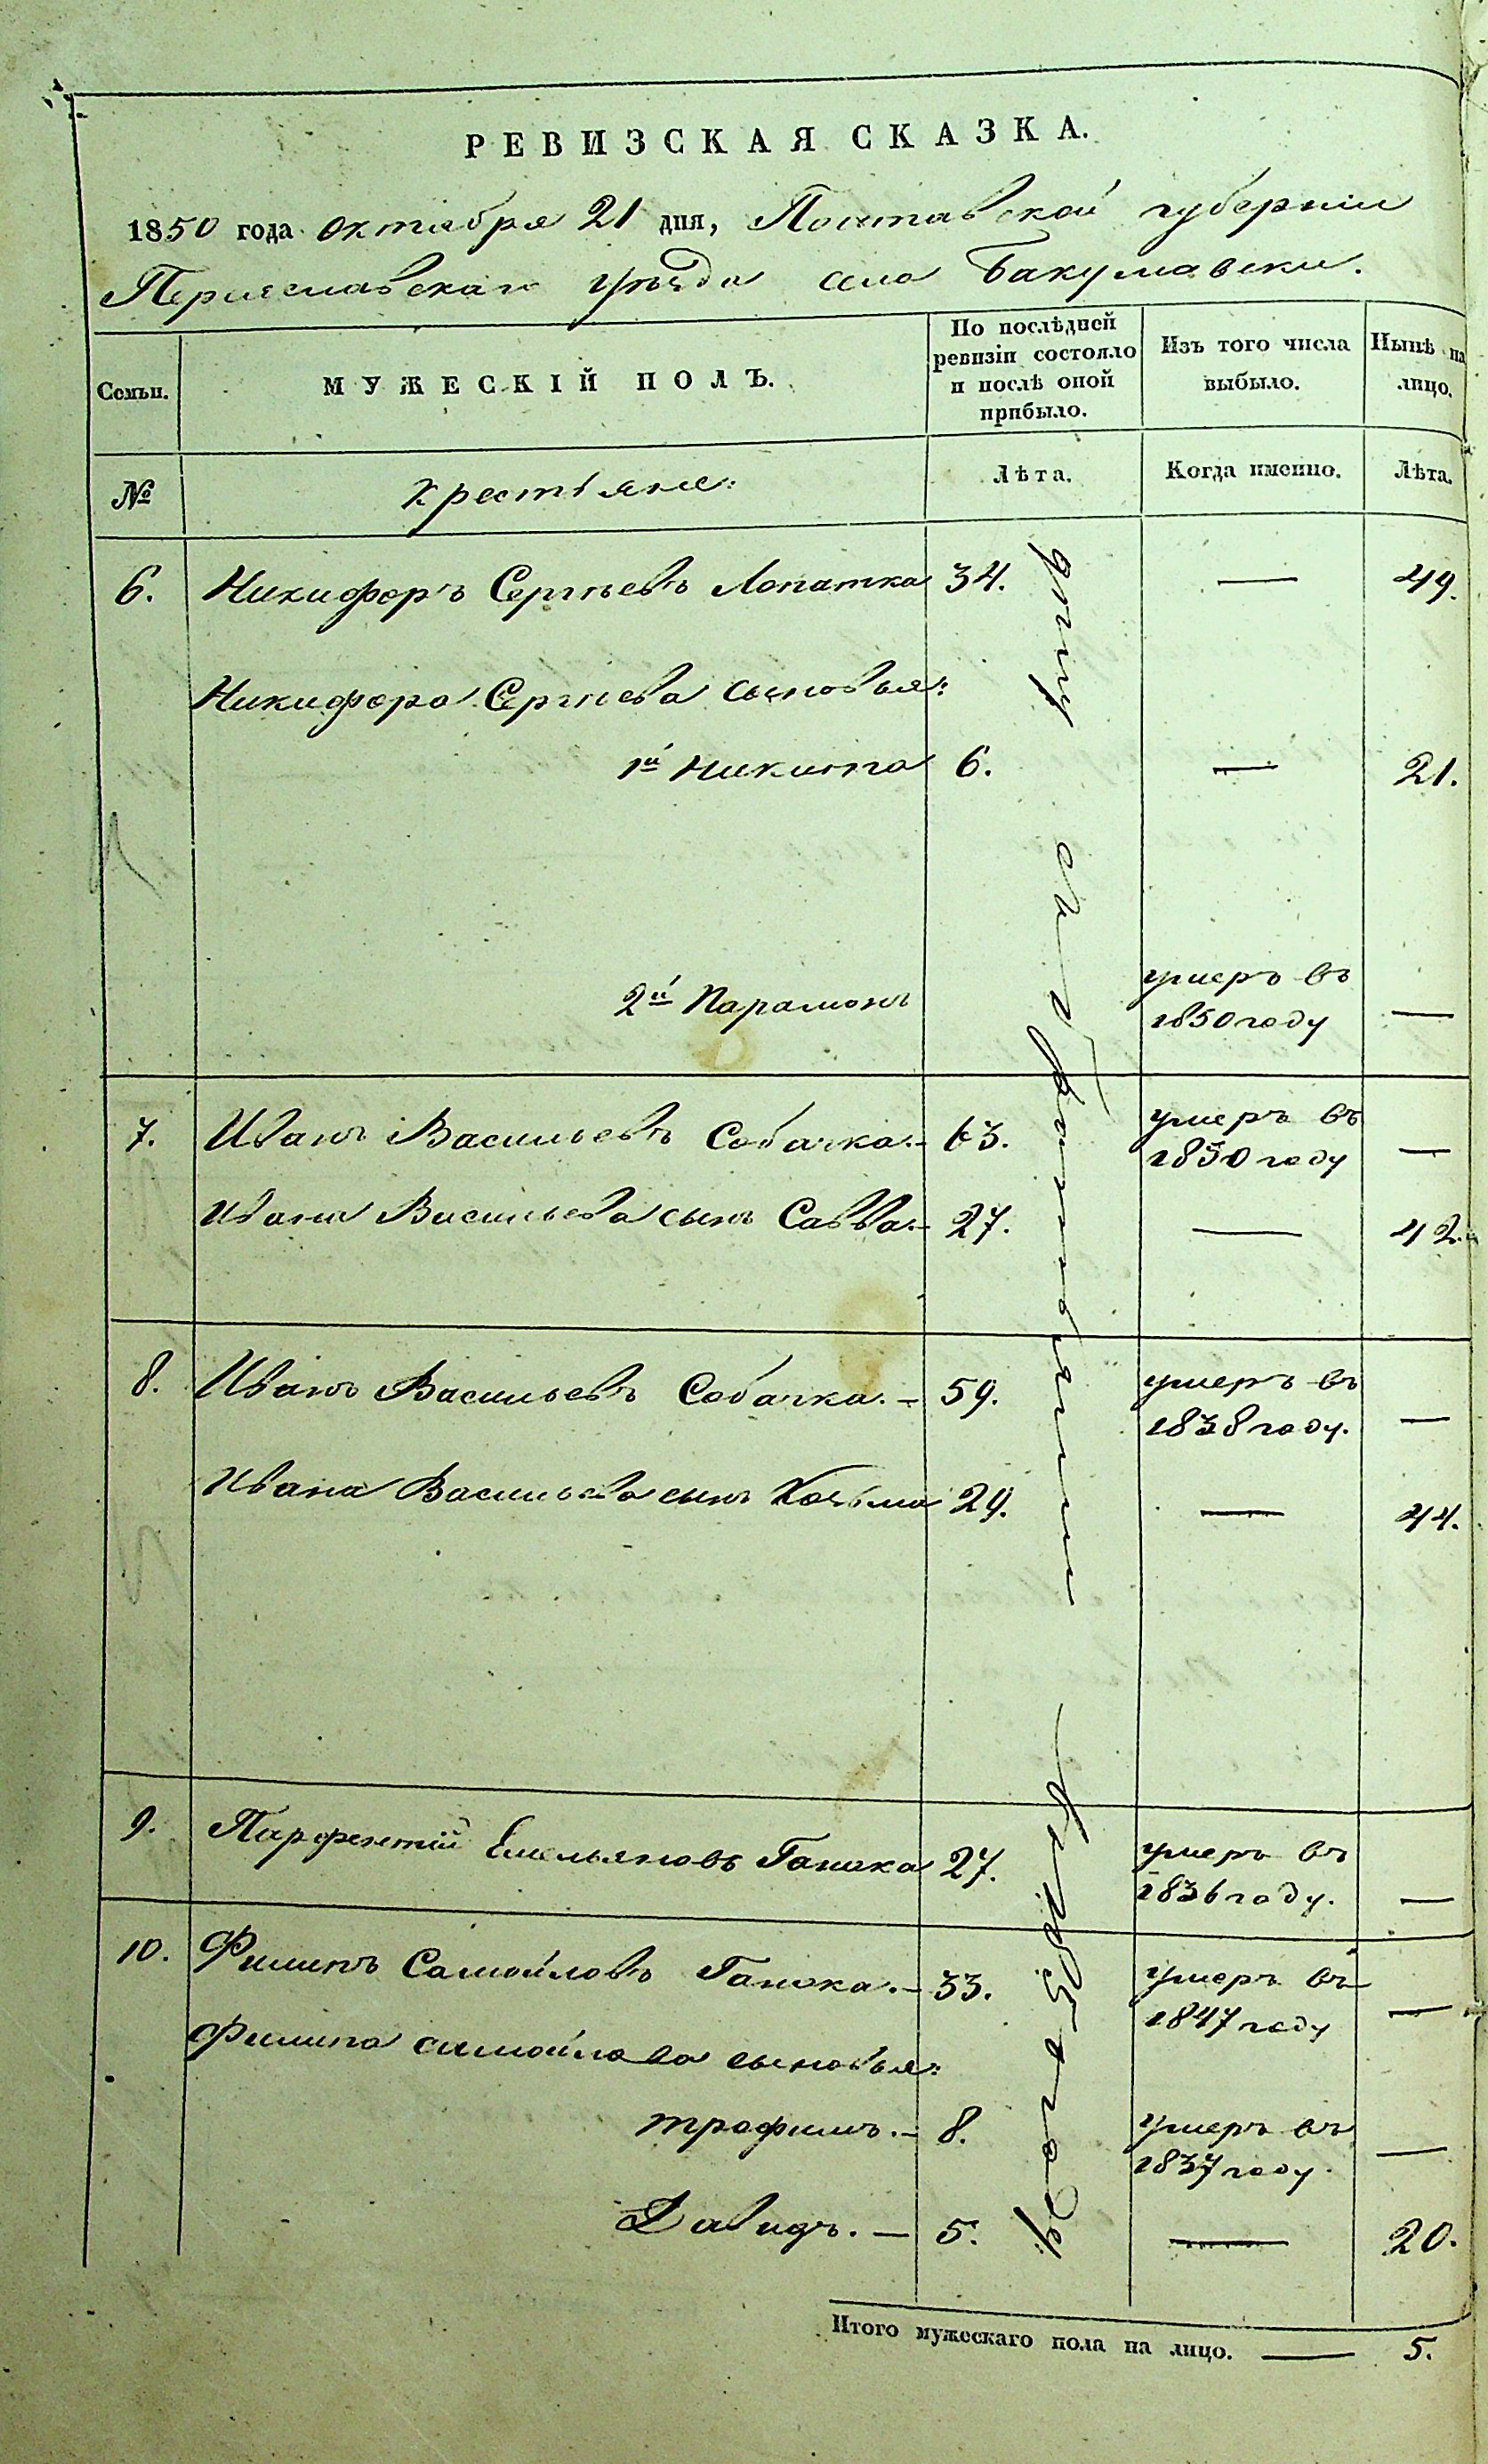 РЕВИЗСКАЯ СКАЗКА.
1850 года октября 21 дня, Полтавской губернiи
Переяславскаго уѣзда села Бакумовки.
Семьи.
МУЖЕСКIЙ ПОЛЪ.
По послѣдней ревизiи состояло и послѣ оной прибыло.
Изъ того числа выбыло.
Нынѣ на лицо.
№
Крестьяне:
Лѣта.
Когда именно.
Лѣта.
6. Никифоръ Сергѣевъ Лопатка 34. — 49.
Никифора Сергѣева сыновья:
1й Никита 6. — 21.
2й Парамонъ умеръ въ 1850 году —
7. Иванъ Васильевъ Собачка.- 63. умеръ въ 1850 году —
Ивана Васильева сынъ Савва.- 27. — 42.
8. Иванъ Васильевъ Собачка. - 59. умеръ въ 1838 году. —
Ивана Васильева сынъ Козьма 29. — 44.
9. Парфентiй Емельяновъ Ганжа 27. умеръ въ 1836 году. —
10. Филипъ Самойловъ 33. умеръ въ 1847 году —
Филипа Самойлова сыновья:
Трофимъ. - 8. умеръ въ 1837 году. —
Давидъ. — 5. — 20.
Итого мужескаго пола на лицо. — 5.